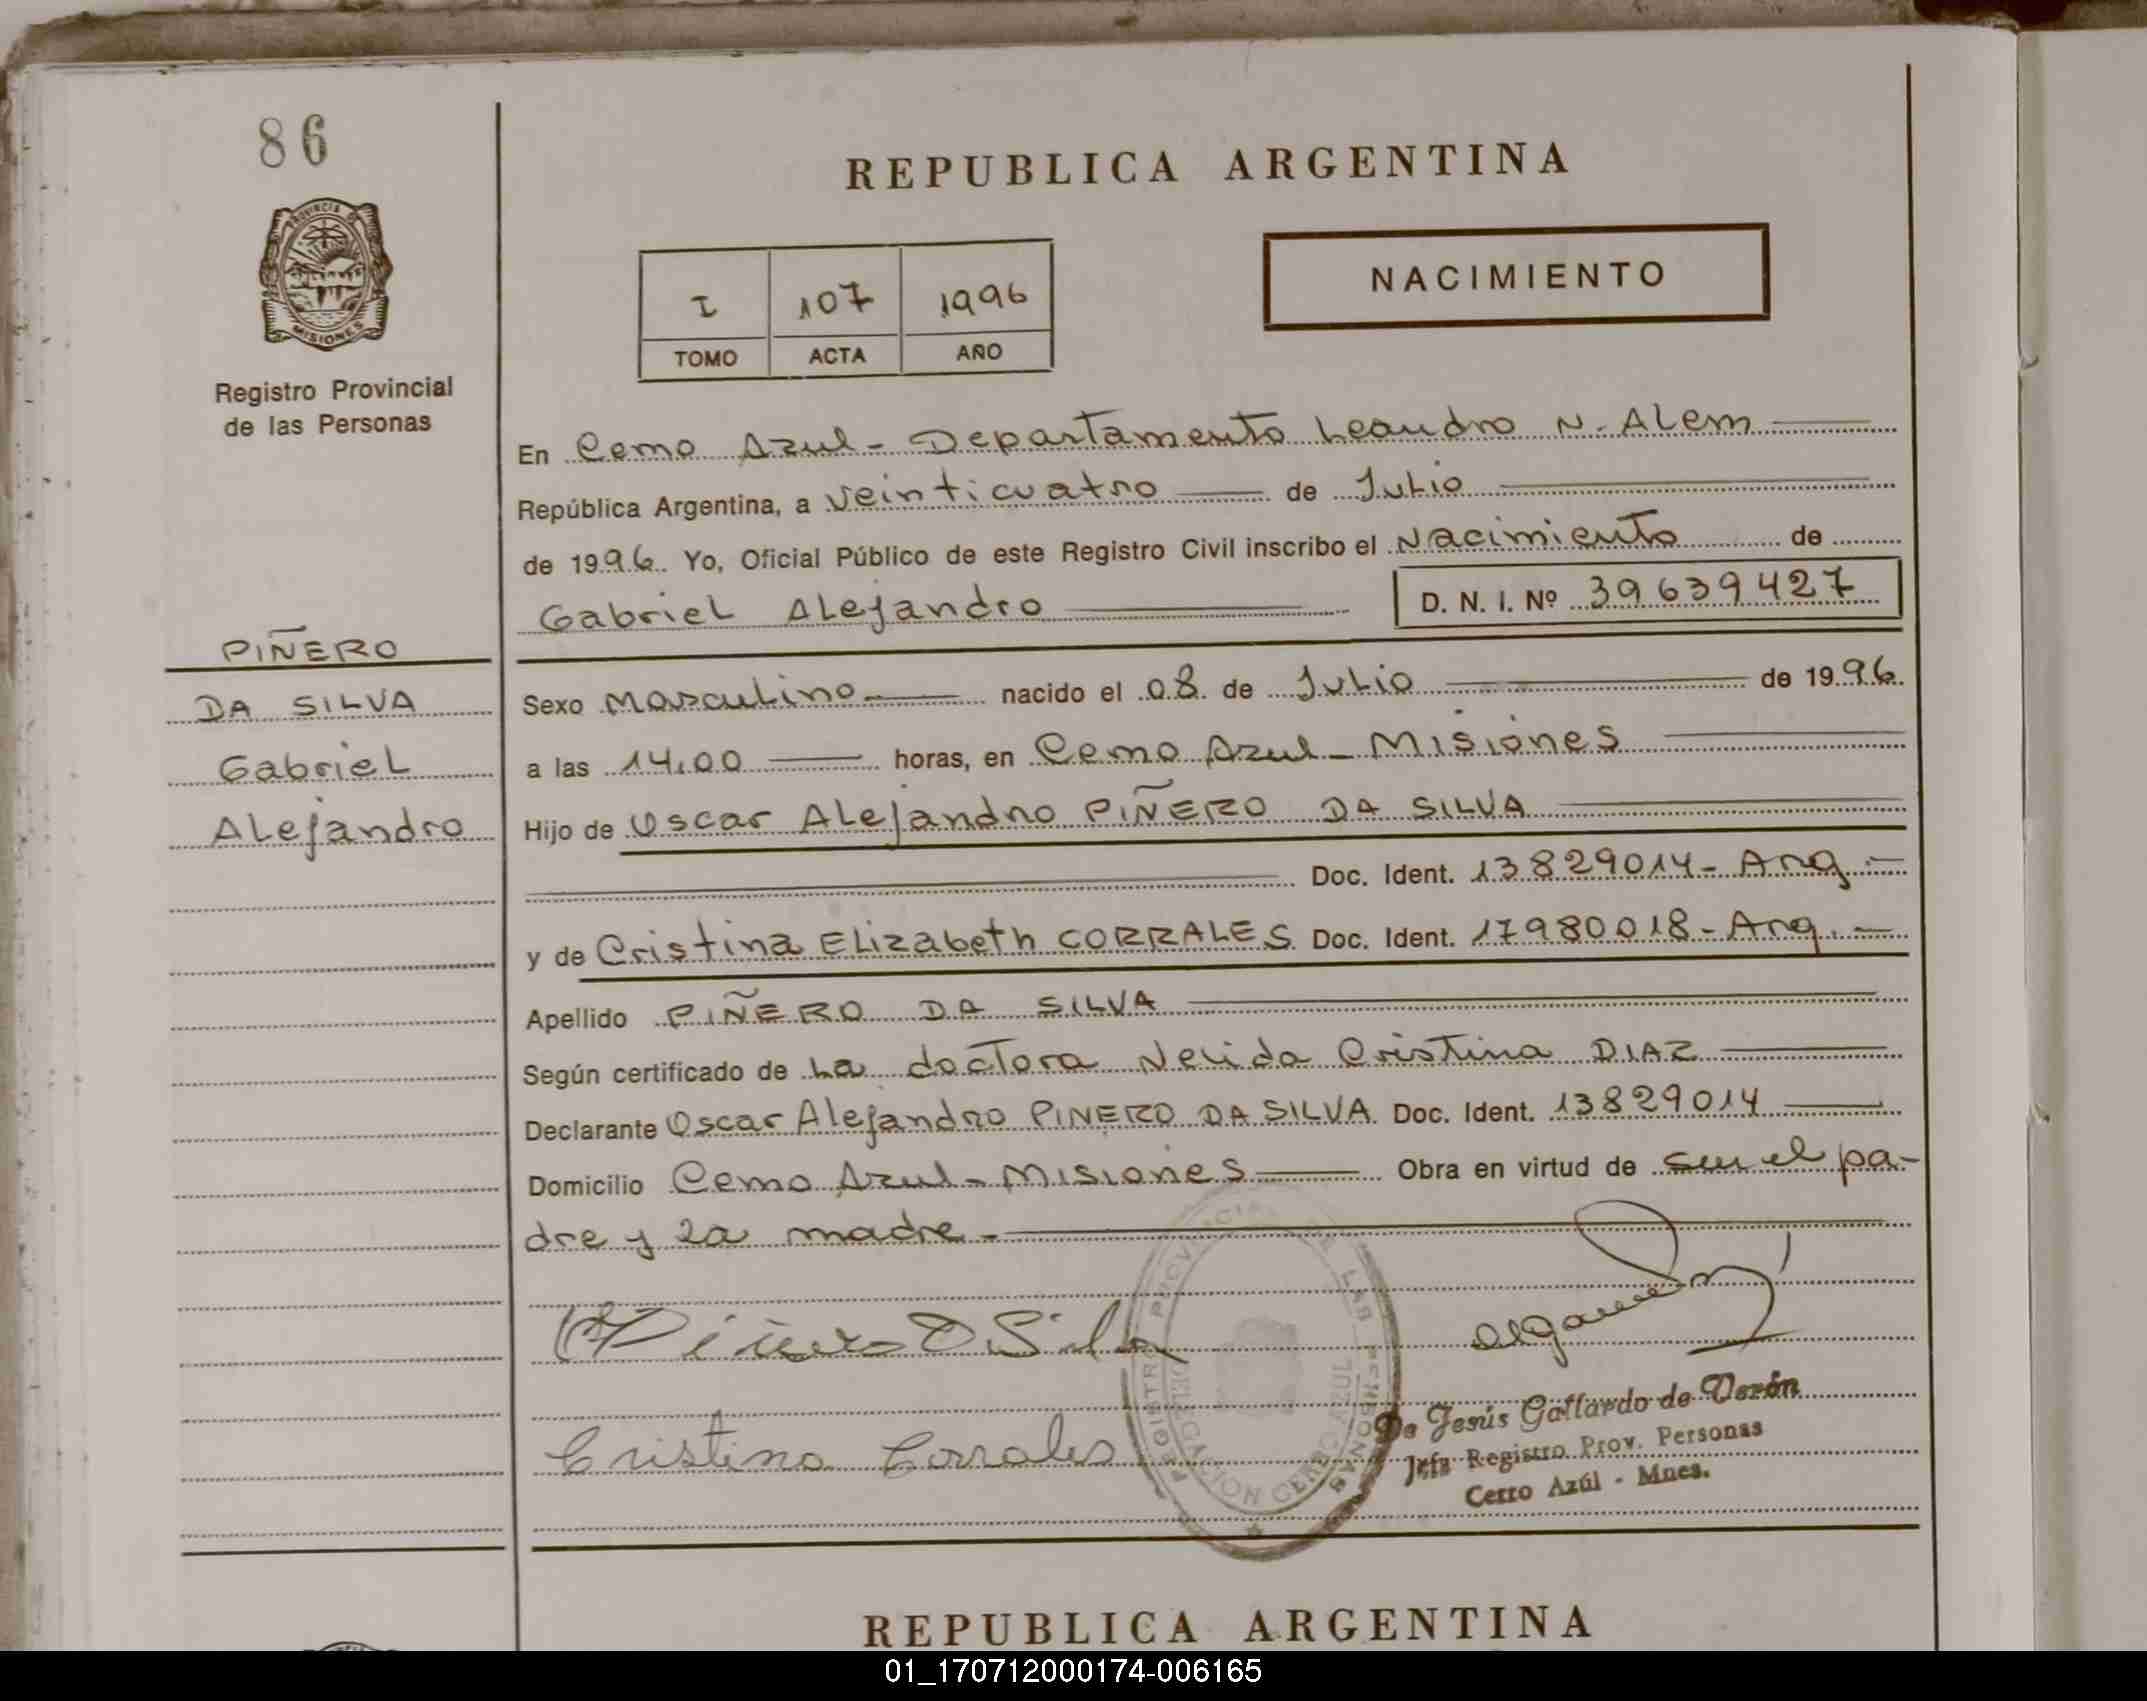 86
REPUBLICA ARGENTINA
PROVINCIA DE
MISIONES
Registro Provincial
de las Personas
I 107 1996
TOMO ACTA AÑO
NACIMIENTO
En Cerro Azul - Departamento Leandro N. Alem
República Argentina, a veinticuatro de Julio
de 1996. Yo, Oficial Público de este Registro Civil inscribo el Nacimiento de
Gabriel Alejandro D. N. I. Nº 39639427
PIÑERO
DA SILVA
Gabriel
Alejandro
Sexo masculino nacido el 08 de Julio de 1996.
a las 14,00 horas, en Cerro Azul - Misiones
Hijo de Oscar Alejandro PIÑERO DA SILVA
Doc. Ident. 13829014 - Arg.
y de Cristina Elizabeth CORRALES Doc. Ident. 17980018 - Arg.
Apellido PIÑERO DA SILVA
Según certificado de La doctora Nelida Cristina DIAZ
Declarante Oscar Alejandro PIÑERO DA SILVA Doc. Ident. 13829014
Domicilio Cerro Azul - Misiones Obra en virtud de ser el pa-
dre y la madre.-
Piñero D Silva
Cristina Corrales
REGISTRO PROVINCIAL DE LAS PERSONAS
DELEGACION CERRO AZUL
De Jesús Gallardo de Verón
Jefa Registro Prov. Personas
Cerro Azúl - Mnes.
REPUBLICA ARGENTINA
01_170712000174-006165